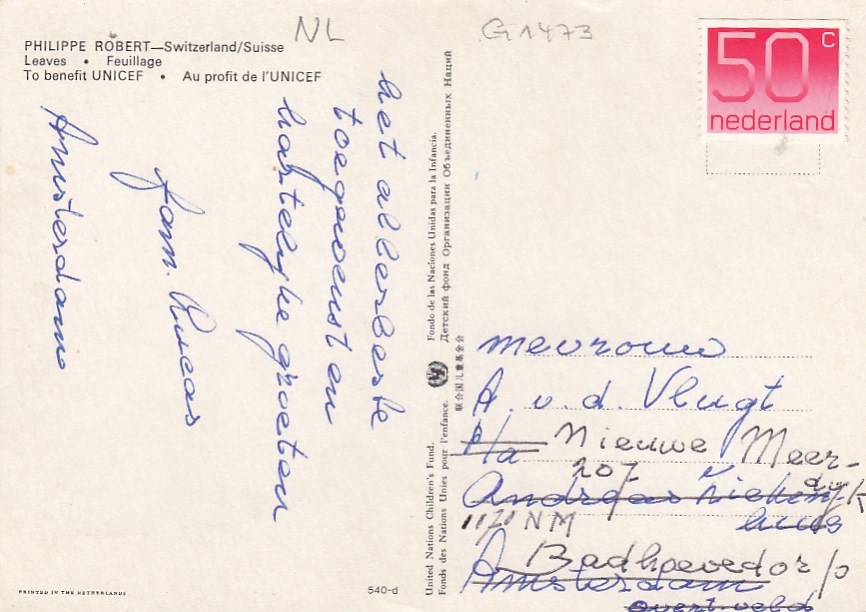 NL
G1473
PHILIPPE ROBERT—Switzerland/Suisse
Leaves • Feuillage
To benefit UNICEF • Au profit de l'UNICEF
50 c
nederland
het allerbeste
toegewenst en
hartelijke groeten
fam. Lucas
Amsterdam
United Nations Children's Fund. Fondo de las Naciones Unidas para la Infancia.
Fonds des Nations Unies pour l'enfance. Детский фонд Организации Объединенных Наций
联合国儿童基金会
mevrouw
A. v. d. Vlugt
P/a Nieuwe Meer-
207 dyk
Andreas Ziekenhuis
1171 NM
Badhoevedorp
Amsterdam
overtveld
PRINTED IN THE NETHERLANDS
540-d